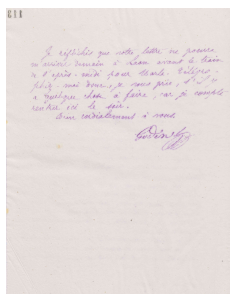 Je réfléchis que votre lettre ne pourra
arriver demain à Jean avant le train
de l'après-midi pour Marle. Télégra-
phiez-moi donc, je vous prie, s'il y
a quelque chose à faire, car je compte
rentrer ici le soir.
Bien cordialement à vous